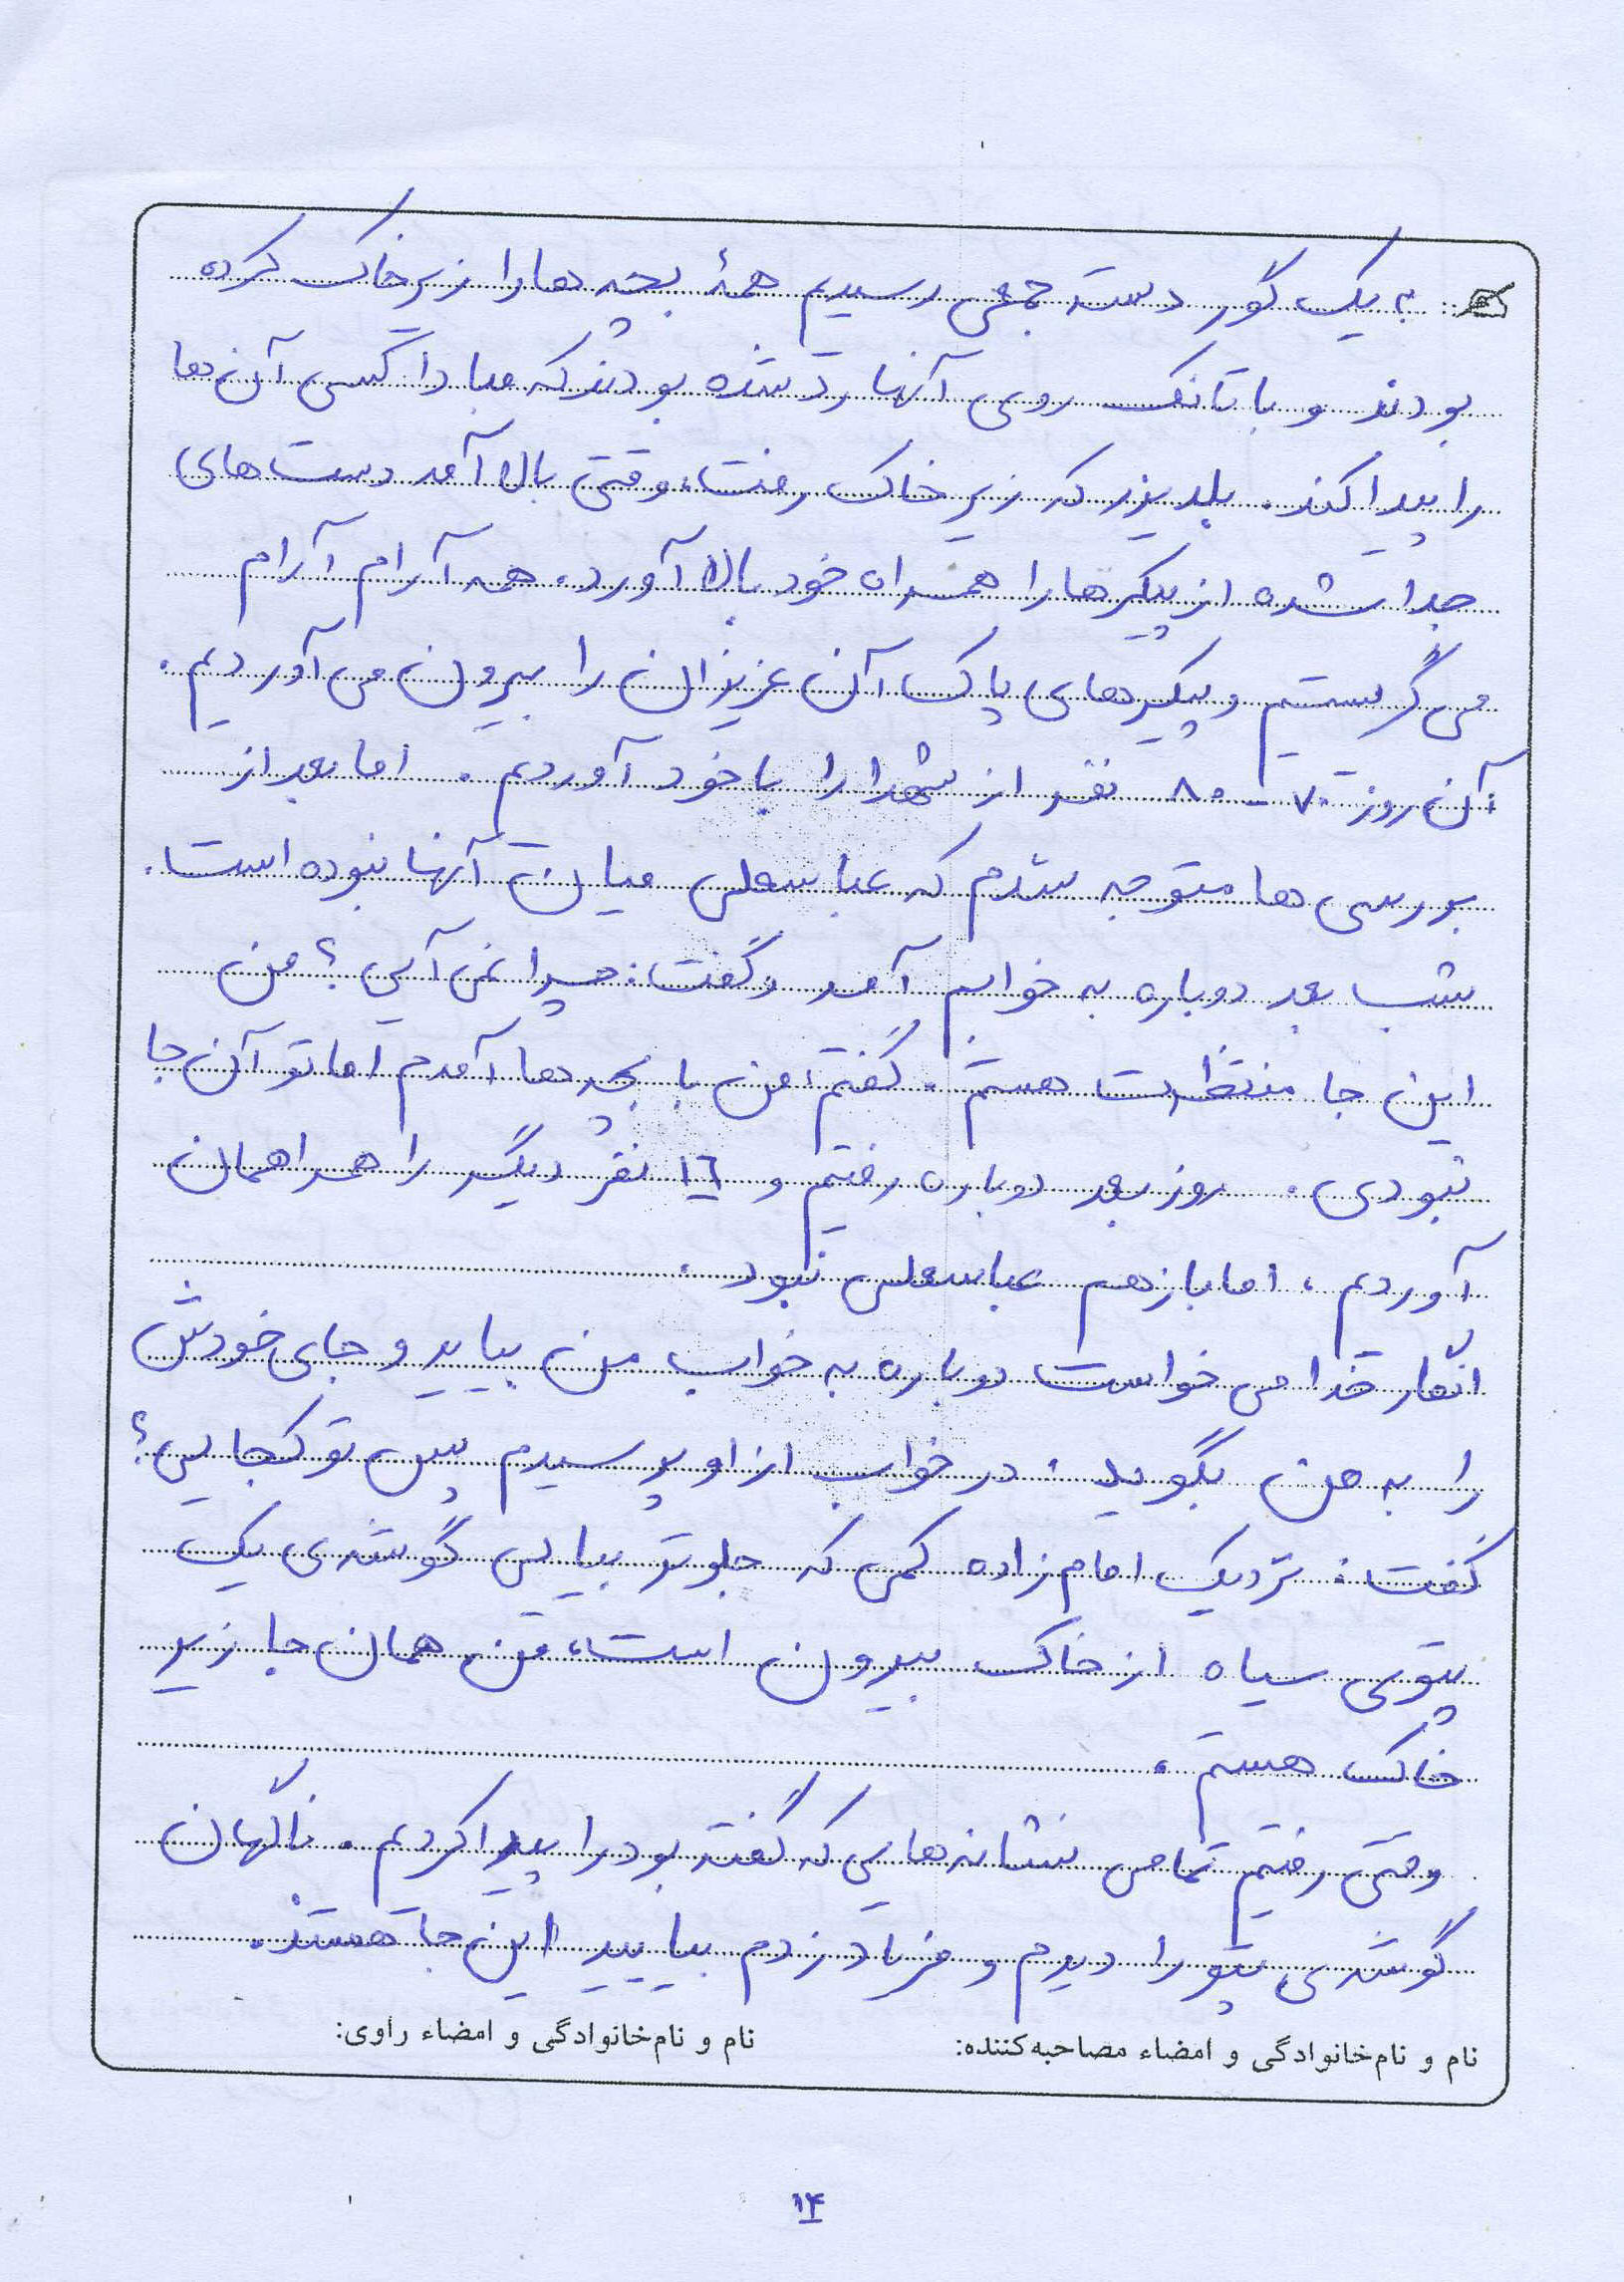 به یک گور دسته جمعی رسیدیم همۀ بچه ها را زیر خاک کرده
بودند و با تانک روی آنها رد شده بودند که مبادا کسی آن ها
را پیدا کند. بلدیزر که زیر خاک رفت، وقتی بالا آمد دست های
جدا شده از پیکرها را همراه خود بالا آورد. همه آرام آرام
می گریستیم و پیکرهای پاک آن عزیزان را بیرون می آوردیم.
آن روز ۷۰ - ۸۰ نفر از شهدا را با خود آوردیم. اما بعد از
بررسی ها متوجه شدم که عباسعلی میان آنها نبوده است.
شب بعد دوباره به خوابم آمد و گفت: چرا نمی آیی؟ من
این جا منتظرت هستم. گفتم: من با بچه ها آمدم اما تو آن جا
نبودی. روز بعد دوباره رفتیم و ۱۶ نفر دیگر را همراهمان
آوردیم، اما باز هم عباسعلی نبود.
انگار خدا می خواست دوباره به خواب من بیاید و جای خودش
را به من بگوید. در خواب از او پرسیدم پس تو کجایی؟
گفت: نزدیک امام زاده کمی که جلوتر بیایی گوشه ی یک
پتوی سیاه از خاک بیرون است، من همان جا زیر
خاک هستم.
وقتی رفتیم تمامی نشانه هایی که گفته بود را پیدا کردیم. ناگهان
گوشه ی پتو را دیدم و فریاد زدم بیایید این جا هستند.
نام و نام‌خانوادگی و امضاء مصاحبه‌کننده: نام و نام‌خانوادگی و امضاء راوی:
۱۴